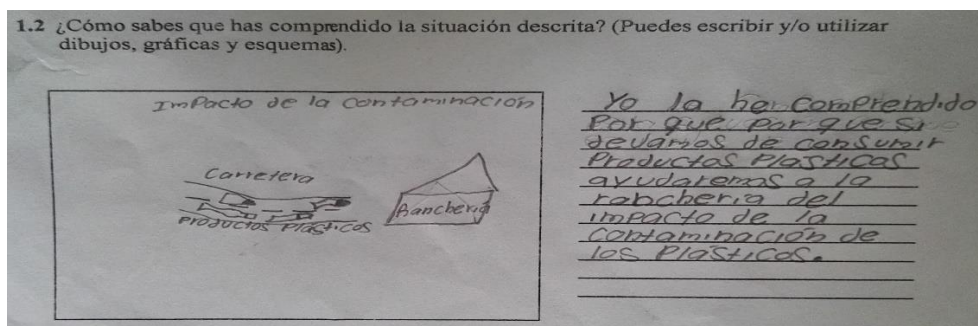 1.2 ¿Cómo sabes que has comprendido la situación descrita? (Puedes escribir y/o utilizar
dibujos, gráficas y esquemas).
Impacto de la contaminación
Carretera
Productos Plásticos
Rancheria
Yo la he comprendido
Por que por que si
devamos de consumir
Productos Plasticos
ayudaremos a la
rabcheria del
impacto de la
contaminación de
los Plasticos.